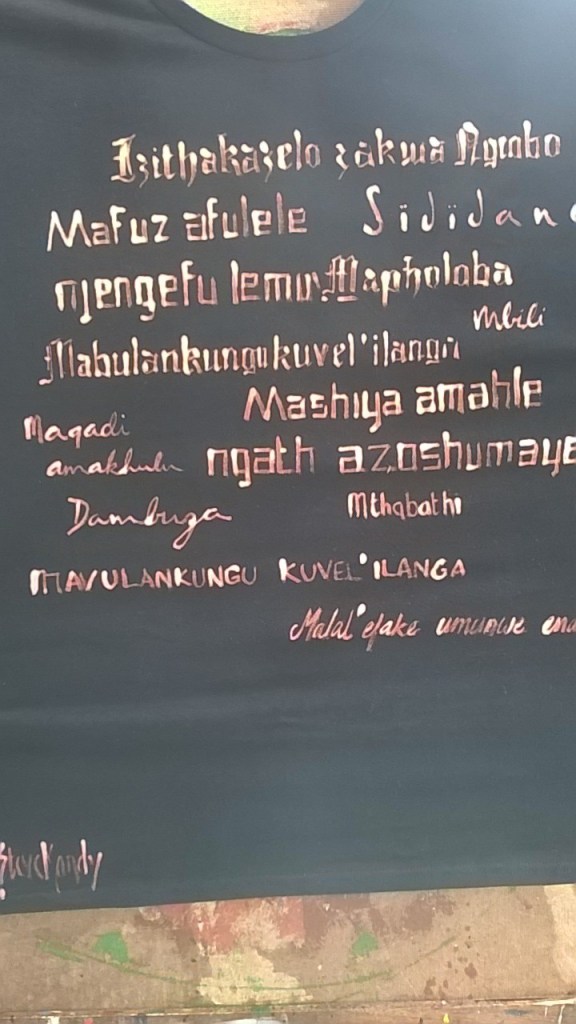 Izithakazelo zakwa Ngcobo
Mafuz afulele Sididan
njengefu lemv Mapholoba
Mbili
Mabulankungukuvel'ilanga
Mashiya amahle
Maqadi
amakhulu ngath azoshumaye
Dambuza Mthabathi
MAVULANKUNGU KUVEL'ILANGA
Malal'efake umunwe
SteveKandy